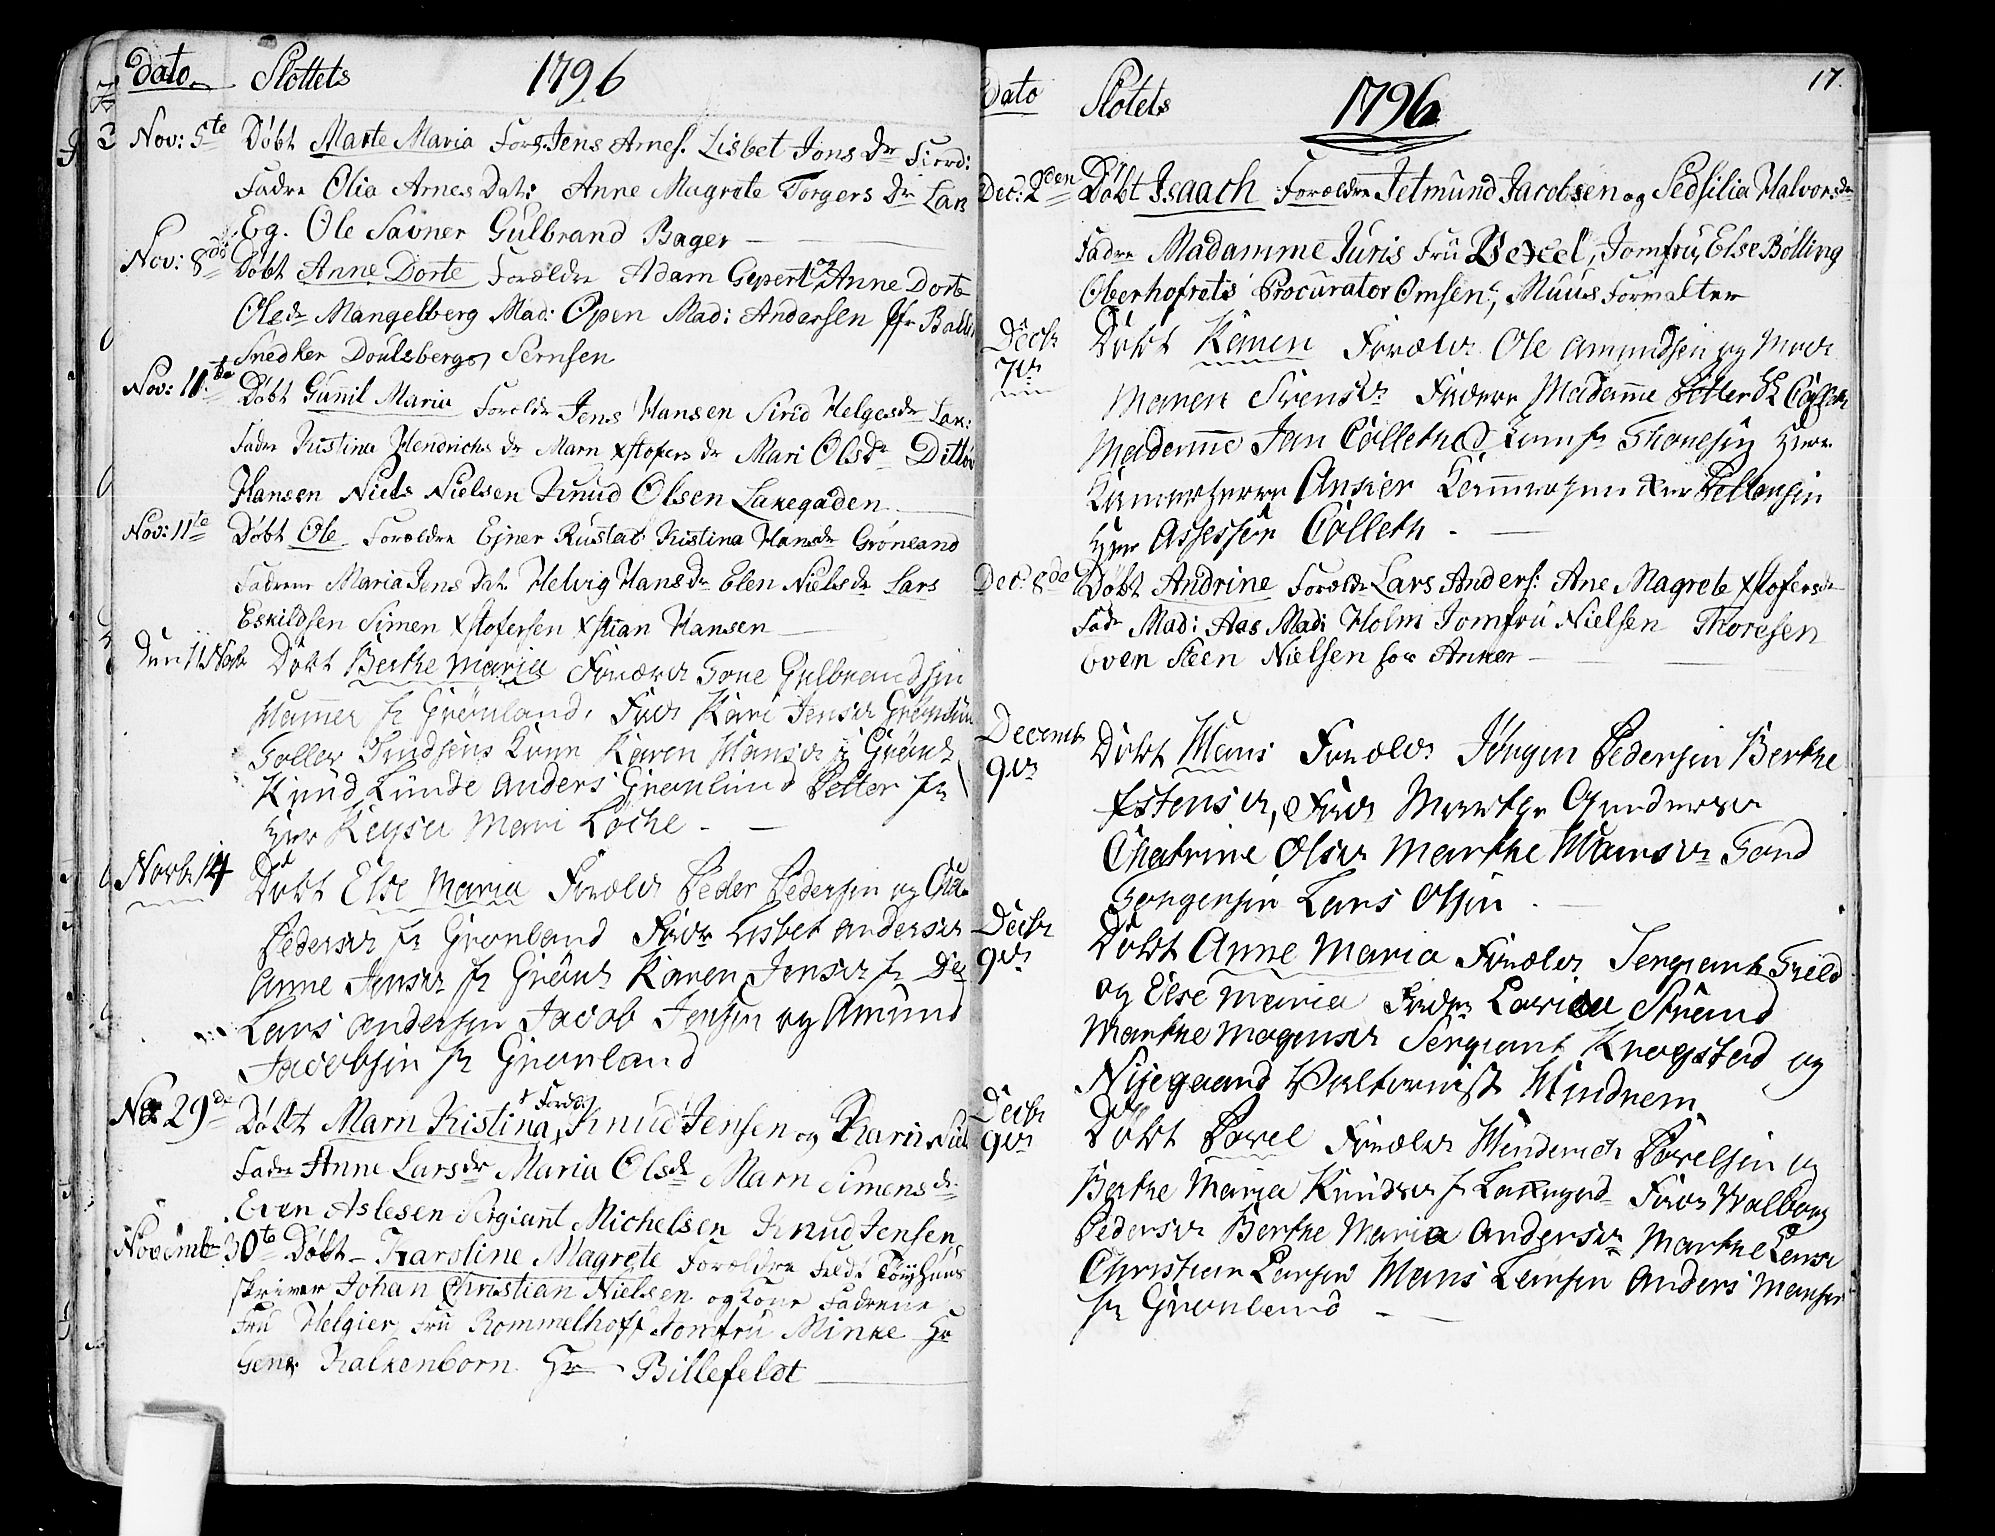 Dato Slottets 1796
Nov: 5te Døbt Marte Maria For: Jens Arnes. Lisbet Jons Dr
Fadre Olia Arnes Dat: Anne Magrete Torgers Dr Lars
Eg. Ole Savner Gulbrand Bager
Nov: 8de Døbt Anne Dorte Forældre Adam Gepert og Anne Dorte
Olsdr Mangelberg Mad: Open Mad: Andersen Jfr
Snedker Doulsberg, Sernsen
Nov: 10te Døbt Gunnil Maria Foreldr Jens Hansen Sirid Helgesdr Lak:
Fadr Kistina Hendrichs dr Marn Xstofers dr Mari Olsdr Dittlev
Hansen Niels Nielsen Knud Olsen Lakegaden
Nov: 11te Døbt Ole Forældre Ejner Rustad Kistina Hansdr Grönland
Faderne Maria Jens Dat: Helvig Hans Dr Elen Nielsdr Lars
Eskildsen Simen Xstofersen Xstian Hansen
Den 11 Novb Døbt Berthe Maria Forældr Tore Gulbrandsen
Hammer fr Grönland, Fadr Kari Jensdr
Karen Hansdr fr Grönl
Knud Lunde Anders Grønlund Petter fr
Herr Keyser Mari Löcke
Novb: 14 Døbt Else Maria Foreldr Peder Pedersen og
Pedersdr fr Grønland Fadr Lisbet Andersdr
Anne Jensdr fr Grönl Karen Jensdr fr
Lars Andersen Jacob Jensen og Amund
Jacobsen fr Grønland
Nov 29de Døbt Marn Kistina, Foreldr Knud Jensen og Karn
Fadr Anne Larsdr Maria Olsdr Marn Simensdr
Even Aslesen Sergiant Michelsen Knud Jensen
Novemb 30te Døbt Karoline Magrete Forældre Feldt Töyhuus
skriver Johan Christian Nielsen og Kone Fadrene
Fru Helgier Fru Rommelhoff Jomfru Minke Hr
Gene. Kalkenborn Hr Billefeldt
Dato Slotets 1796 17.
Dec: 2den Døbt Isaach Forældre Jetmund Jacobsen og Sedsilia Halvorsdr
Fadre Madamme Juris Fru Wexel, Jomfru Else Bølling
Oberhofrets Procurator Omsen, Muus Forvalter
Decbr 7de Døbt Karen Foreldr Ole Amundsen og
Maren Svensdr Faderne Madamme Petter Colleth
Madamme Jan Colleth Jomfr Thonesen Herr
Kamerherre Ancker
Herr Assessor Colleth
Dec: 8de Døbt Andrine Foreldr Lars Anders: Ane Magrete Xstofersdr
Fadr Mad: Aas Mad: Holm Jomfru Nielsen Thoresen
Even Steen Nielsen hos Anker
Decemb 9de Døbt Hans Foreldr Jörgen Pedersen Berthe
Estensdr, Fadr Marthe Gundersdr
Chatrine Olsdr Marthe Hansdr
Lars Olsen
Decbr 9de Døbt Anne Maria Foreldr Sergiant
og Else Maria Fadr Strand
Marthe Mogensdr Sergiant Krogstad og
Nijegaard Hindrem
Decbr 9de Døbt Povel Foreldr Hinderich Povelsen og
Berthe Maria Knudsdr fr Fadr Walborg
Pedersdr Berthe Maria Andersdr Marthe
Christian Larsen Hans Larsen Anders Hansen
fr Grønland